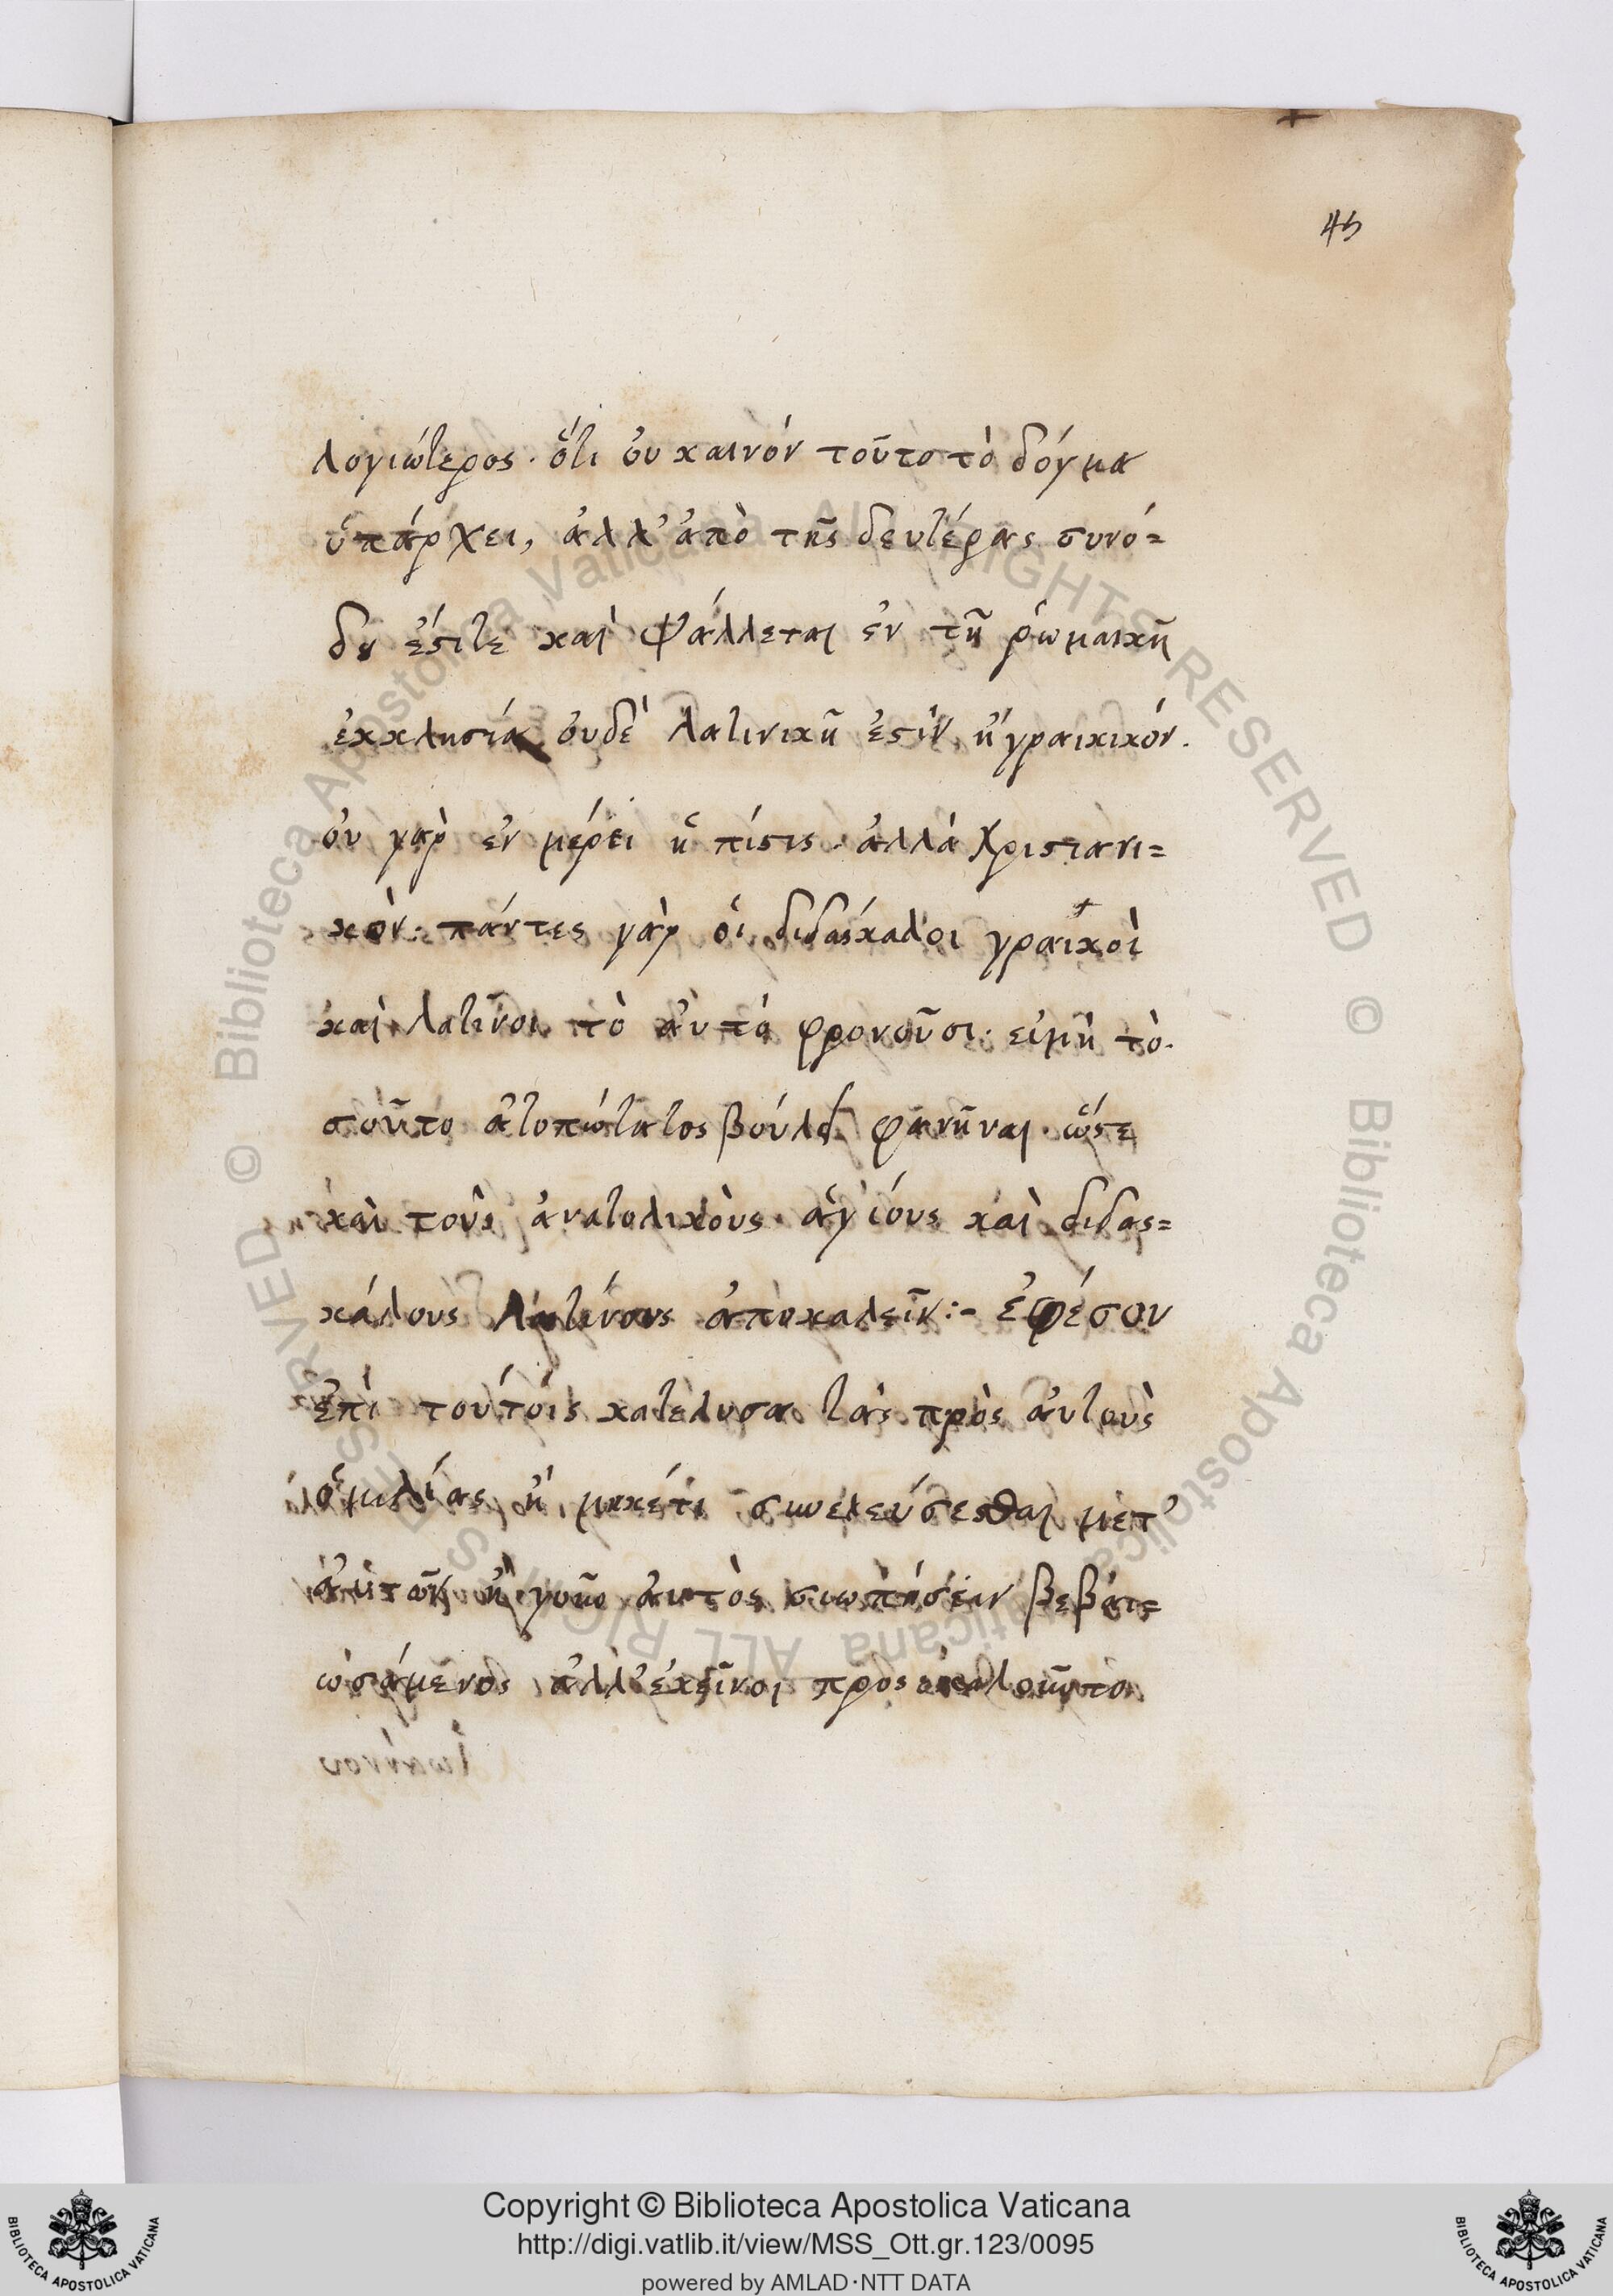 45
λογιώτερος· ὅτι ὀυ καινόν τοῦτο τὸ δόγμα
ὑπάρχει, ἀλλ' ἀπὸ τῆς δευτέρας συνό=
δȣ ἔστϊ τε καὶ ψάλλεται ἐν τῇ ῥωμαικῇ
ἐκκλησία· ὀυδὲ λατινικῆ ἐστὶν, ἢ γραικικόν.
ὀυ γαρ ἐν μέρει ἡ πίστις· ἀλλὰ χριστιανι=
κὸν· πάντες γὰρ ὁι διδασκαλοι γραικοὶ
καὶ λατῖνοι τὸ ἀυτό φρονοῦσι· ειμὴ τὸ.
σοῦτο ἀτοπώτατος βούλει φανῆναι· ὥστε
καὶ τοὺς ἀνατολικοὺς ἁγίους καὶ διδασ=
κάλους Λατίνους ἀποκαλεῖν:- ἐφέσου
Ἐπὶ τουτοις κατέλυσα τὰς πρὸς ἀυτοὺς
ὁμιλίας ἢ μηκέτι συνελεύσεσθαι μετ'
ἀυτῶν ἢ γοῦν ἀυτὸς σιωπήσειν βεβαι=
ωσάμενος ἀλλ' ἐκεῖνοι προς
Copyright © Biblioteca Apostolica Vaticana
http://digi.vatlib.it/view/MSS_Ott.gr.123/0095
powered by AMLAD·NTT DATA
BIBLIOTECA APOSTOLICA VATICANA
BIBLIOTECA APOSTOLICA VATICANA
© Biblioteca Apostolica Vaticana ALL RIGHTS RESERVED
© Biblioteca Apostolica Vaticana ALL RIGHTS RESERVED